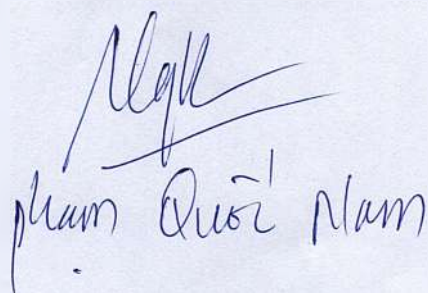 Phạm Quốc Nam